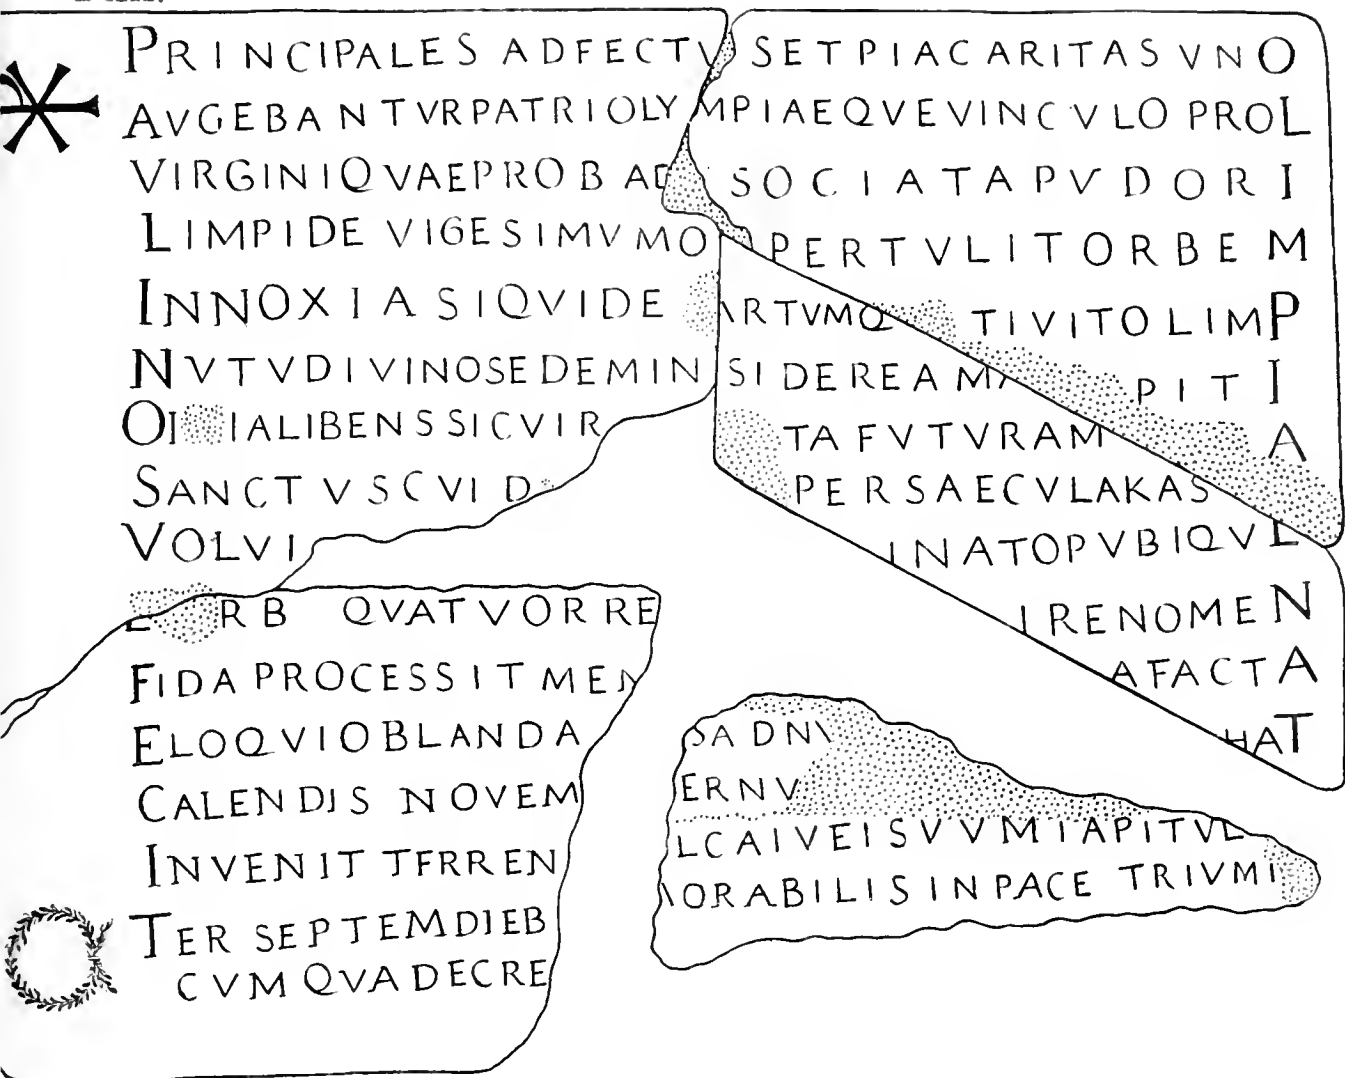 PRINCIPALES ADFECTVSETPIACARITASVNO
AVGEBANTVRPATRIOLYMPIAEQVEVINCVLO PROL
VIRGINIQVAEPROBAD SOCIATAPVDORI
LIMPIDE VIGESIMVMO PERTVLITORBEM
INNOXIASIQVIDE ARTVMQ TIVITOLIMPI
NVTVDIVINOSEDEMINSIDEREAM PITI
OI IALIBENSSICVIR TAFVTVRAM A
SANCTVSCVID PERSAECVLAKAS
VOLVI INATOPVBIQVL
RB QVATVORRE IRENOMEN
FIDA PROCESSIT MEN AFACTA
ELOQVIOBLANDA SADN HAT
CALENDIS NOVEM ERNV
INVENIT TERREN LCAIVEISVVMTAPITVL
TER SEPTEMDIEB ORABILIS IN PACE TRIVMI
CVM QVADECRE